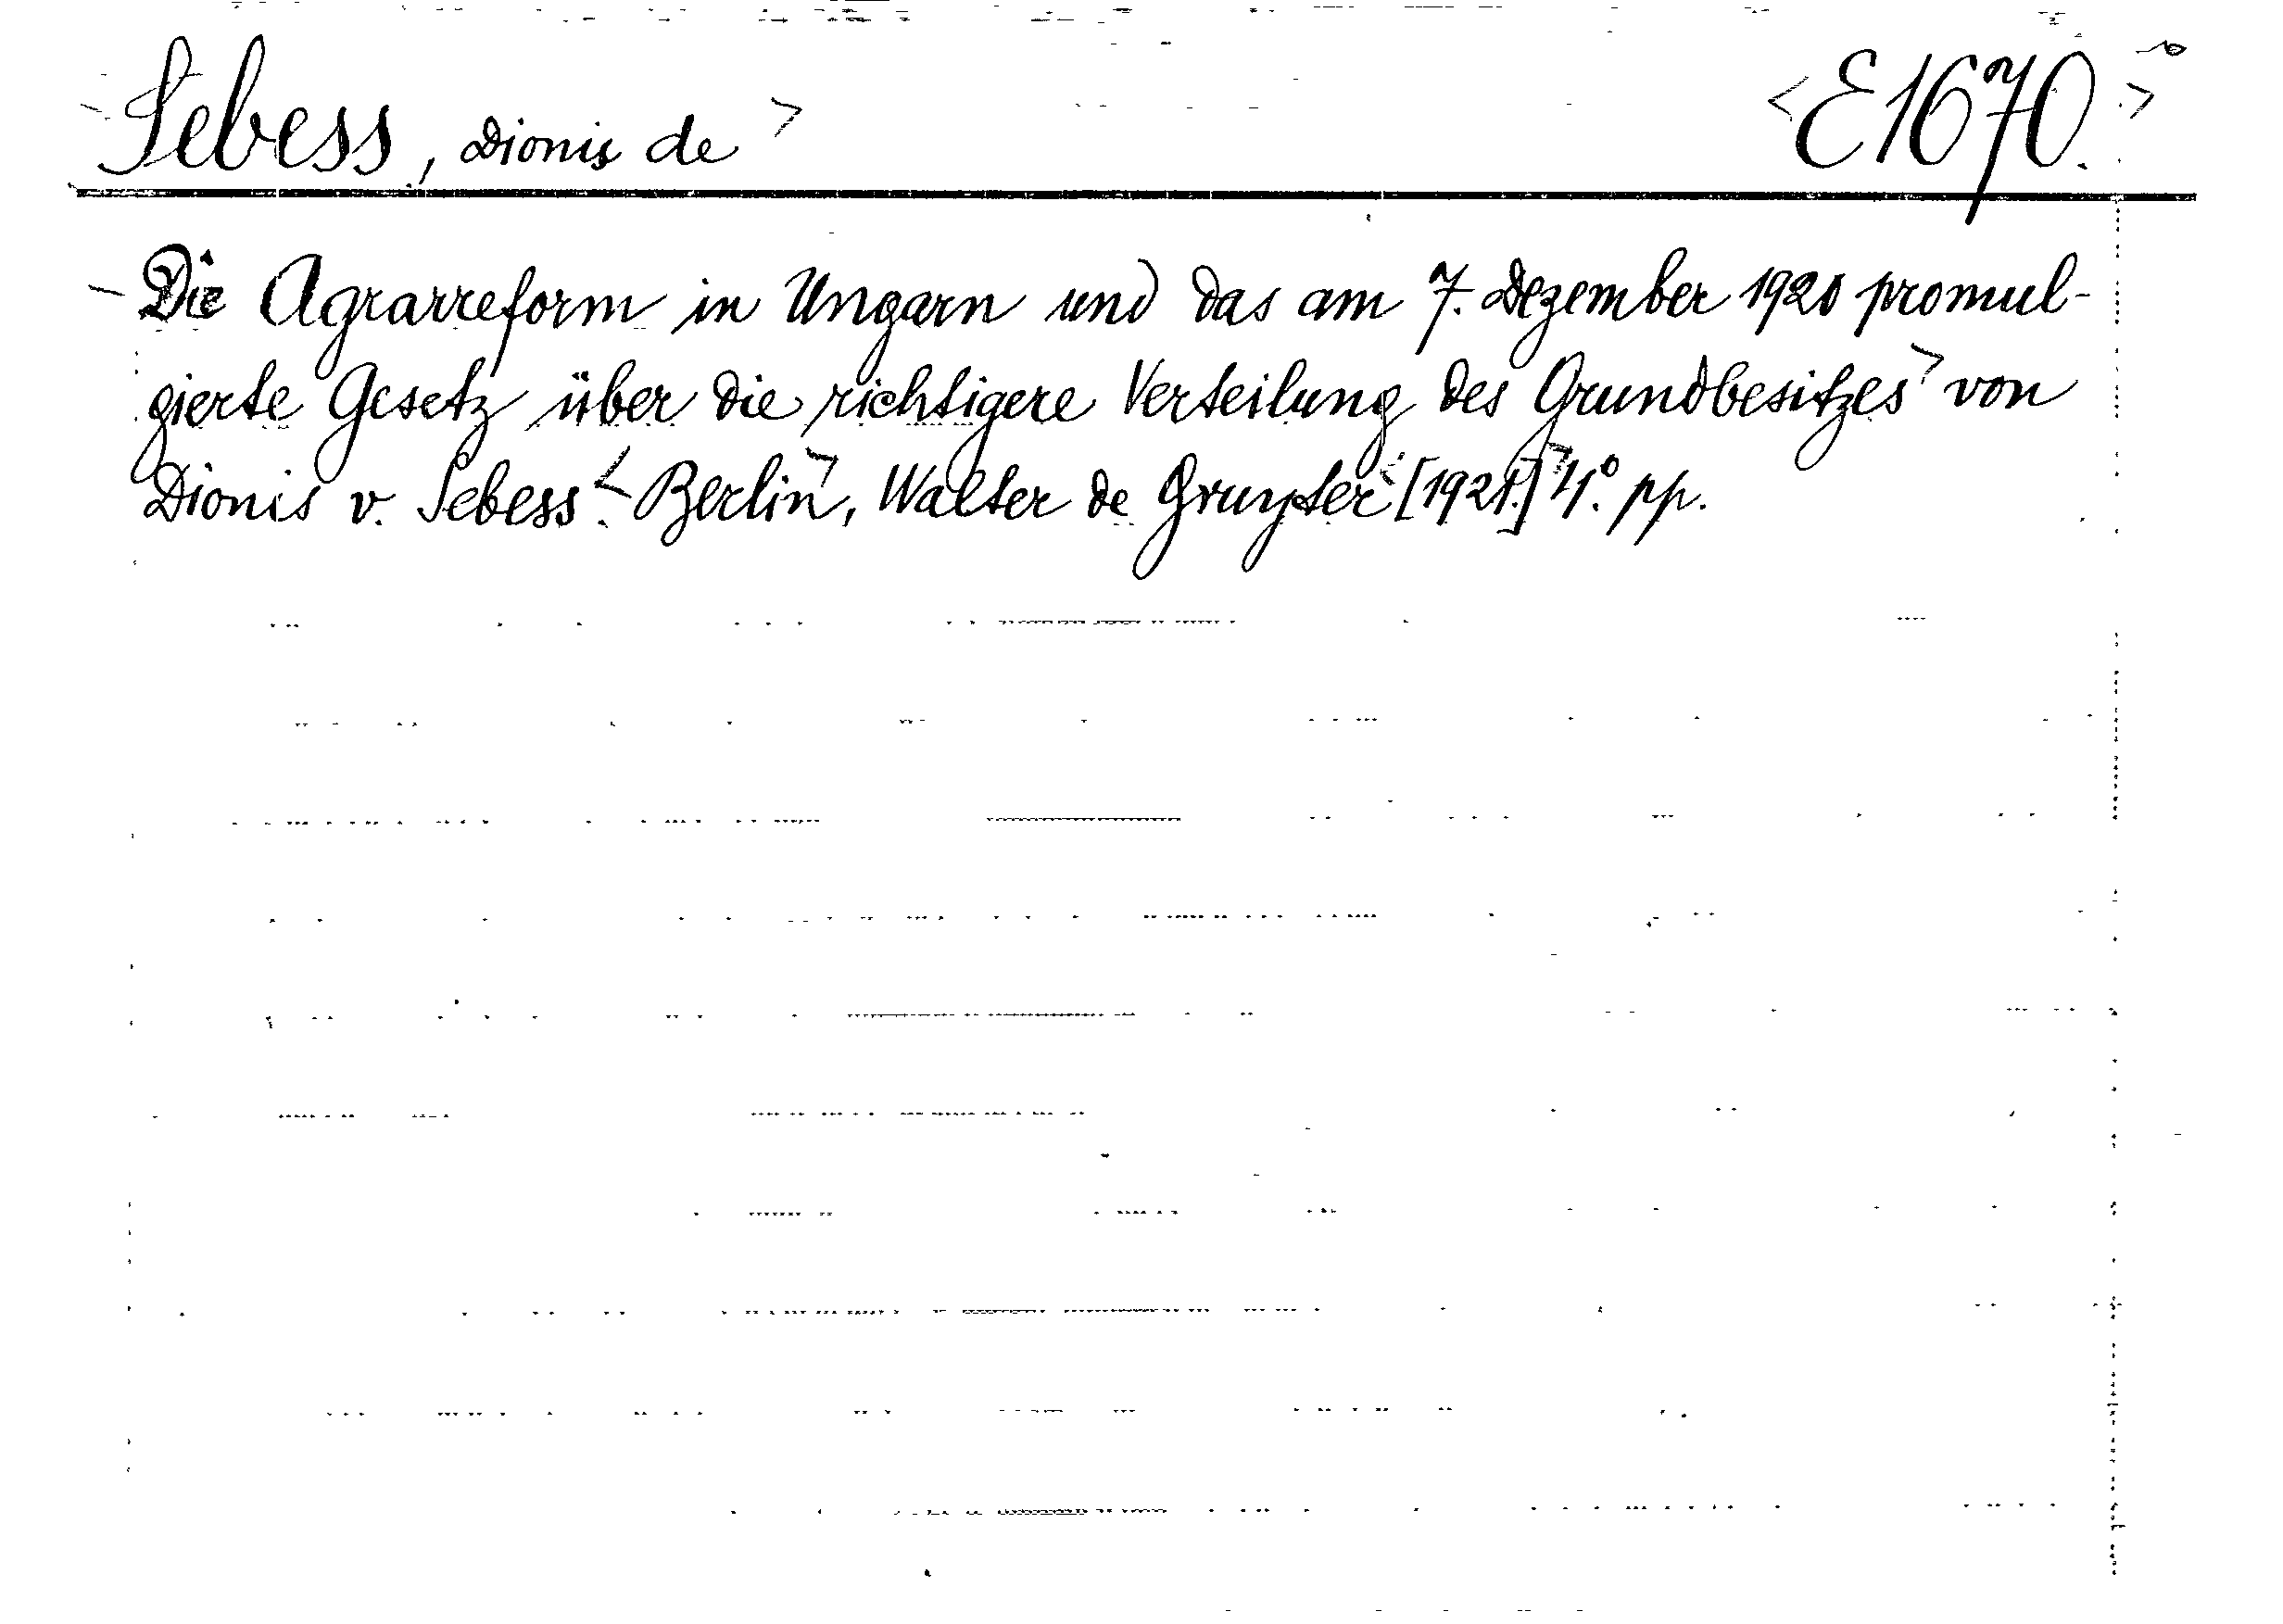 Sebess, Dionis de > <E1670.>
Die Agrarreform in Ungarn und das am 7. Dezember 1920 promul-
gierte Gesetz über die richtigere Verteilung des Grundbesitzes> von
Dionis v. Sebess.< Berlin>, Walter de Gruyter [1921.]> 4°. pp.